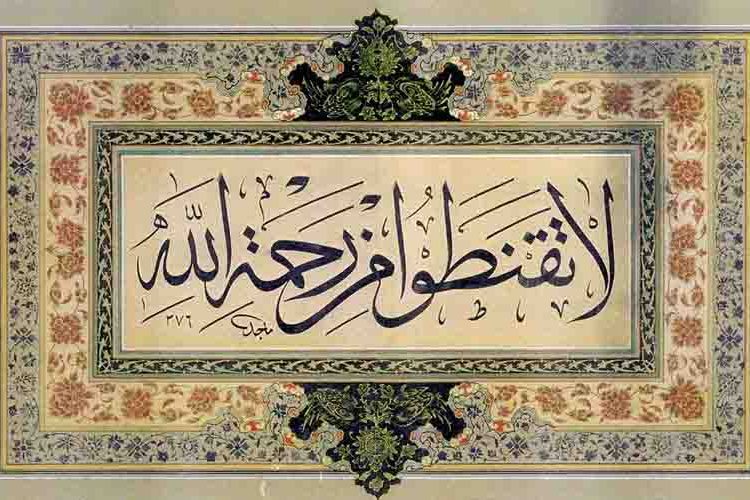 لا تقنطوا من رحمة الله
ماجد
١٣٧٦